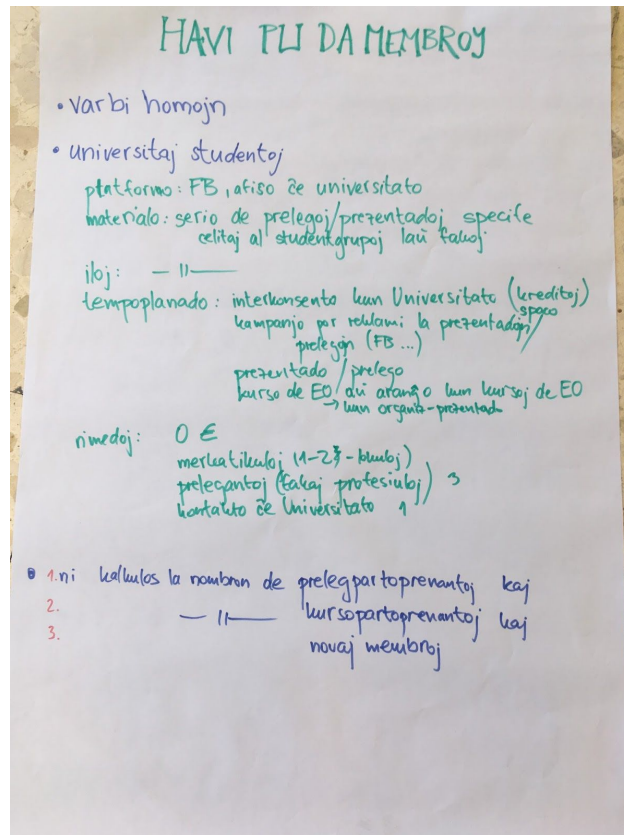 HAVI PLI DA MEMBROJ
• varbi homojn
• universitaj studentoj
platformo: FB, afiŝo ĉe universitato
materialo: serio de prelegoj/prezentadoj specife
celitaj al studentgrupoj laŭ fakoj
iloj: — 11 —
tempoplanado: interkonsento kun Universitato (kreditoj)
spaco
kampanjo por reklami la prezentadojn/
prelegojn (FB ...)
prezentado / prelego
kurso de EO/ aŭ aranĝo kun kursoj de EO
→ kun organiz-prezentado
rimedoj: 0 €
merkatikuloj (1-2)
prelegantoj (fakaj profesiuloj) 3
kontakto ĉe Universitato 1
• 1. ni kalkulos la nombron de prelegpartoprenantoj kaj
2. — 11 — kursopartoprenantoj kaj
3. novaj membroj